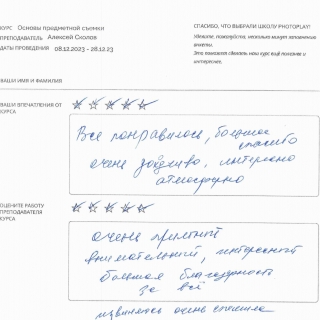 КУРС Основы предметной съемки
ПРЕПОДАВАТЕЛЬ Алексей Сколов
ДАТЫ ПРОВЕДЕНИЯ 08.12.2023 - 28.12.23
СПАСИБО, ЧТО ВЫБРАЛИ ШКОЛУ PHOTOPLAY!
Уделите, пожалуйста, несколько минут заполнению
анкеты.
Это поможет сделать наш курс ещё полезнее и
интереснее.
ВАШИ ИМЯ И ФАМИЛИЯ
ВАШИ ВПЕЧАТЛЕНИЯ ОТ
КУРСА
Все понравилось, большое
спасибо
очень интересно
атмосферно
ОЦЕНИТЕ РАБОТУ
ПРЕПОДАВАТЕЛЯ
КУРСА
очень приятный
внимательный, интересный
большая благодарность
за всё
извиняюсь очень спешила